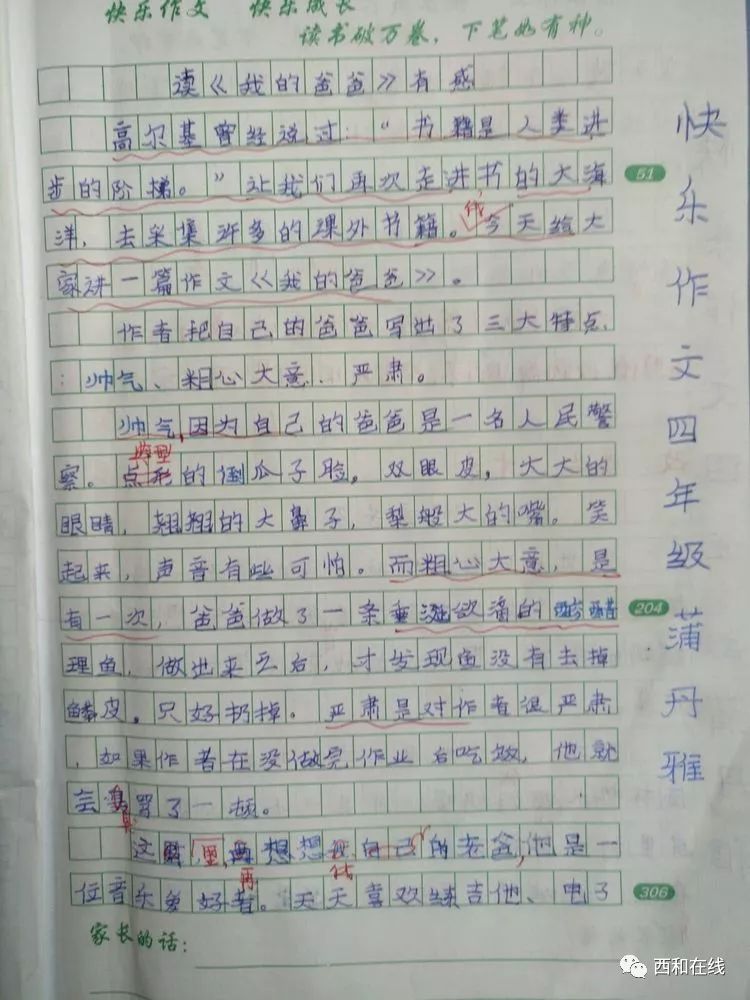 快乐作文 快乐成长
读书破万卷，下笔如有神。
读《我的爸爸》有感
高尔基曾经说过："书籍是人类进
步的阶梯。"让我们再次走进书的大海
洋，去采集许多的课外书籍。今天给大
家讲一篇作文《我的爸爸》。
作者把自己的爸爸写出了三大特点
：帅气、粗心大意、严肃。
帅气，因为自己的爸爸是一名人民警
察。典型的倒瓜子脸，双眼皮，大大的
眼睛，翘翘的大鼻子，梨般大的嘴。笑
起来，声音有些可怕。而粗心大意，是
有一次，爸爸做了一条垂涎欲滴的糖醋
理鱼，做出来之后，才发现鱼没有去掉
鳞皮，只好扔掉。严肃是对作者很严肃
，如果作者在没做完作业后吃饭，他就
会臭骂了一顿。
这里再想想我自己的老爸，他是一
位音乐爱好者。天天喜欢练吉他、电子
家长的话：
51
204
306
快乐作文四年级蒲丹雅
西和在线